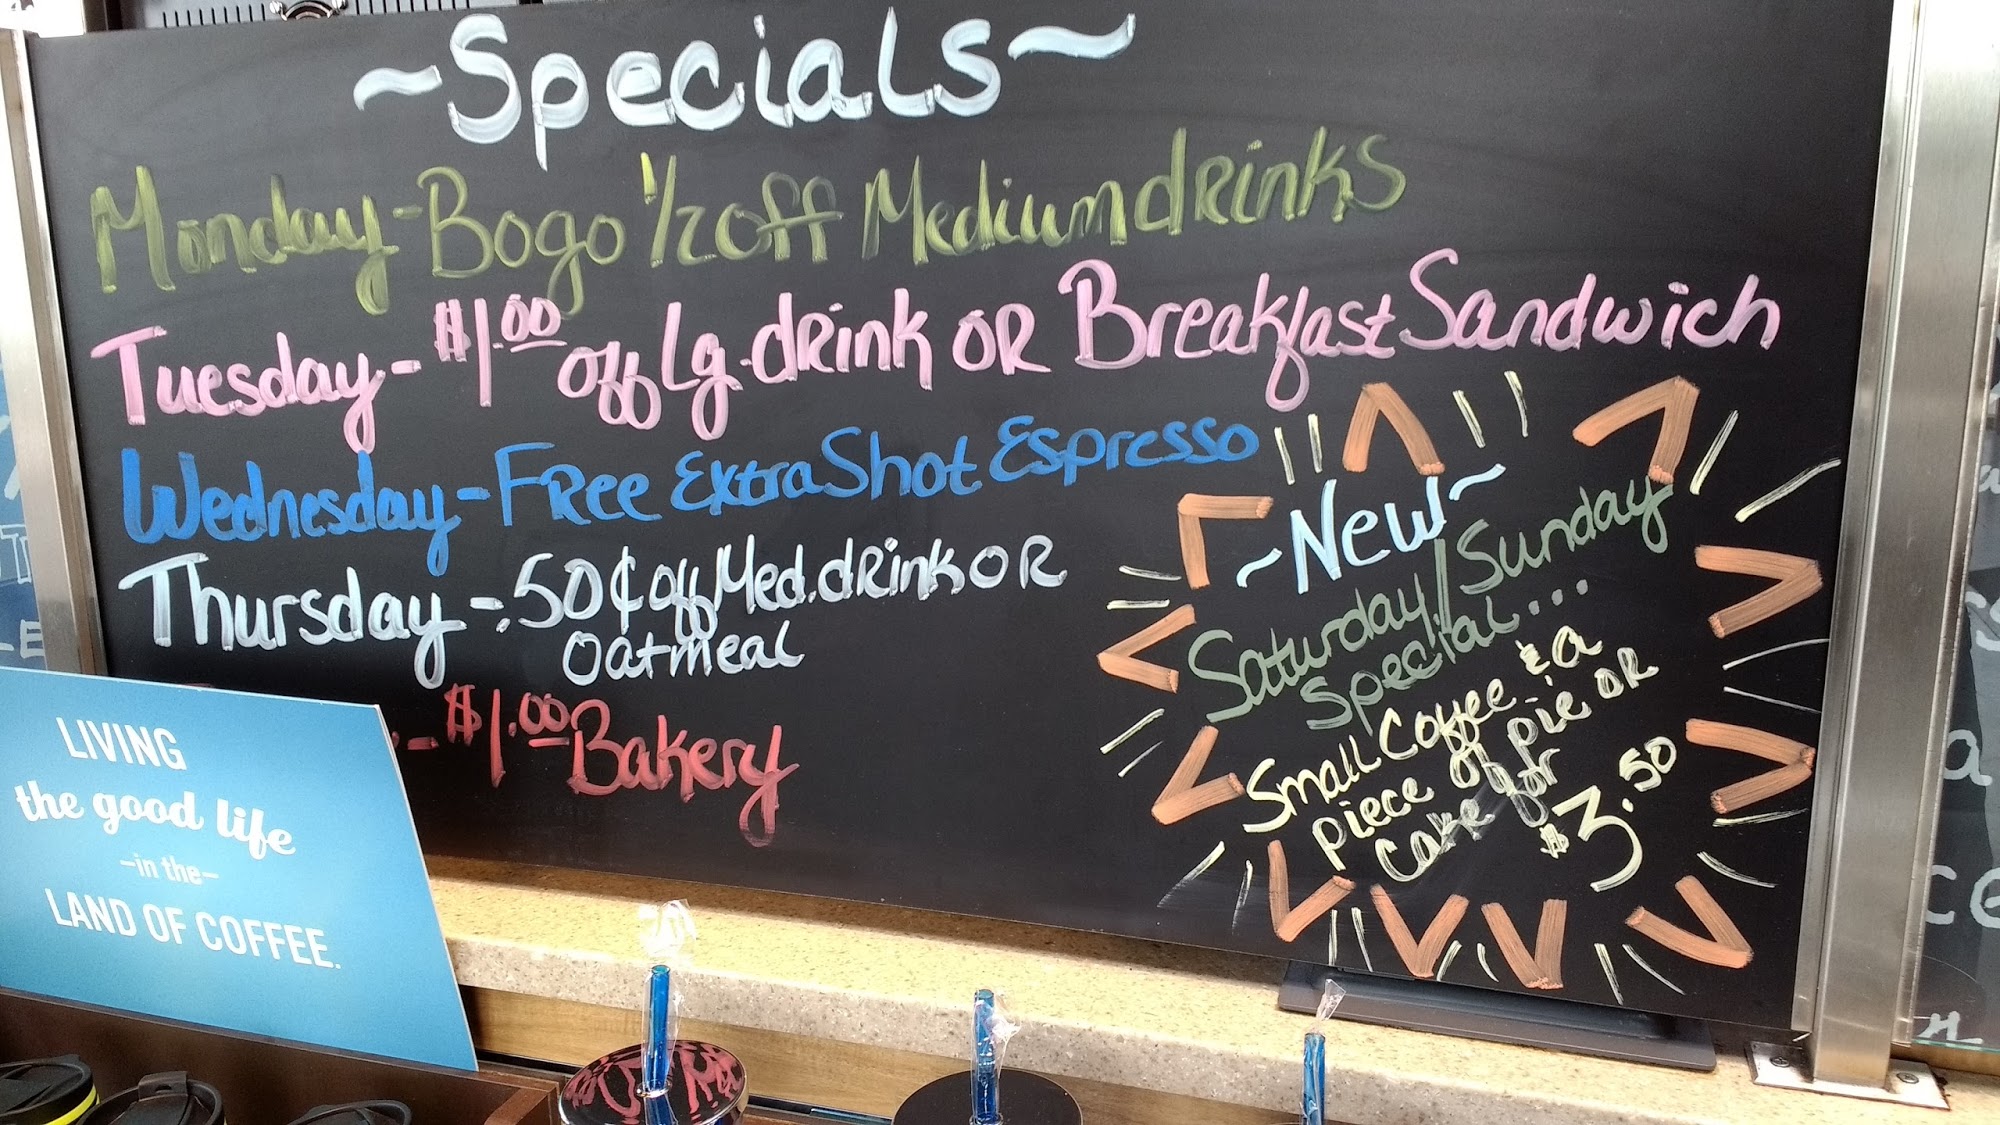 ~Specials~
Monday - Bogo 1/2 off Medium drinks
Tuesday - $1.00 off Lg. drink OR Breakfast Sandwich
Wednesday - Free Extra Shot Espresso
Thursday - .50¢ off Med. drink OR
Oatmeal
- $1.00 Bakery
~New~
Saturday/Sunday
Special...
Small Coffee & a
piece of pie OR
Cake for
$3.50
LIVING
the good life
-in the-
LAND OF COFFEE.